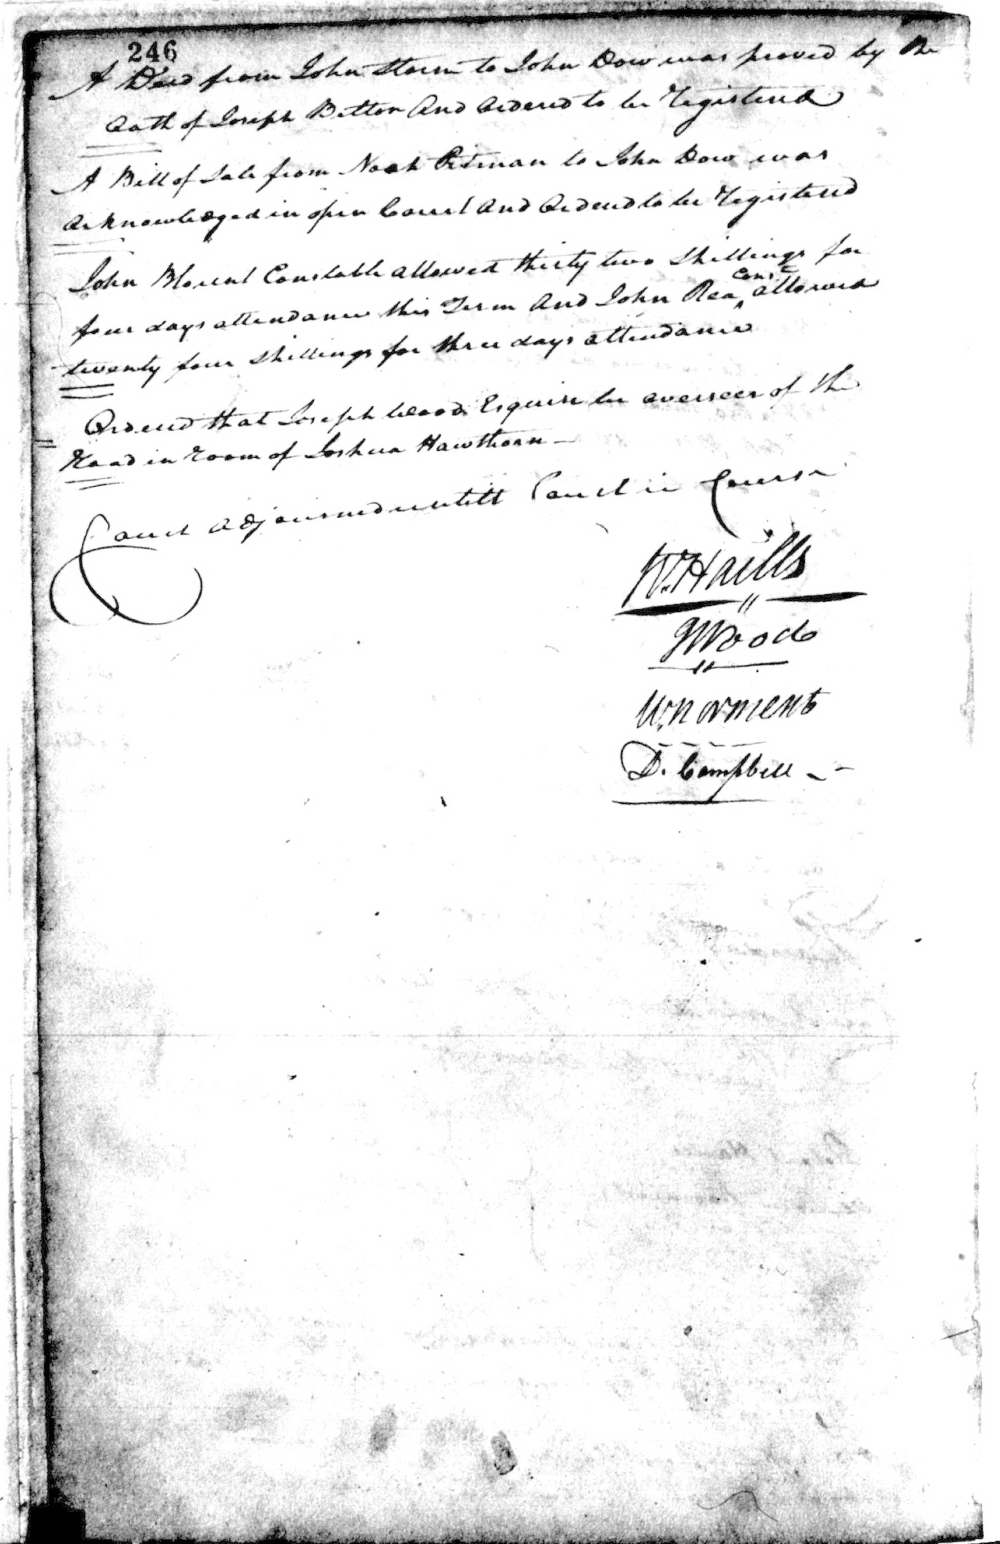 246
A Deed from John Storm to John Dow was proved by the
oath of Joseph Betton And Ordered to be Registered
A Bill of Sale from Noah Pitman to John Dow was
acknowledged in open Court And Ordered to be Registered
John Blount Constable allowed thirty two Shillings for
four days attendance this Term And John Rea Const allowed
twenty four Shillings for three days attendance
Ordered that Joseph Wood Esquire be overseer of the
Road in room of Joshua Hawthorn
Court adjourned untill Court in Course
Wm Haills
J Wood
W. Norment
D. Campbell